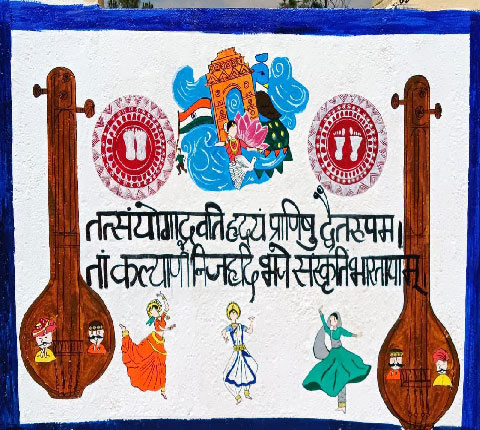 तत्संयोगाद्रवति हृदयं प्राणिषु द्वैतरुपम।
तां कल्याणीं निजहृदि भजे संस्कृतिं भारतीयाम्